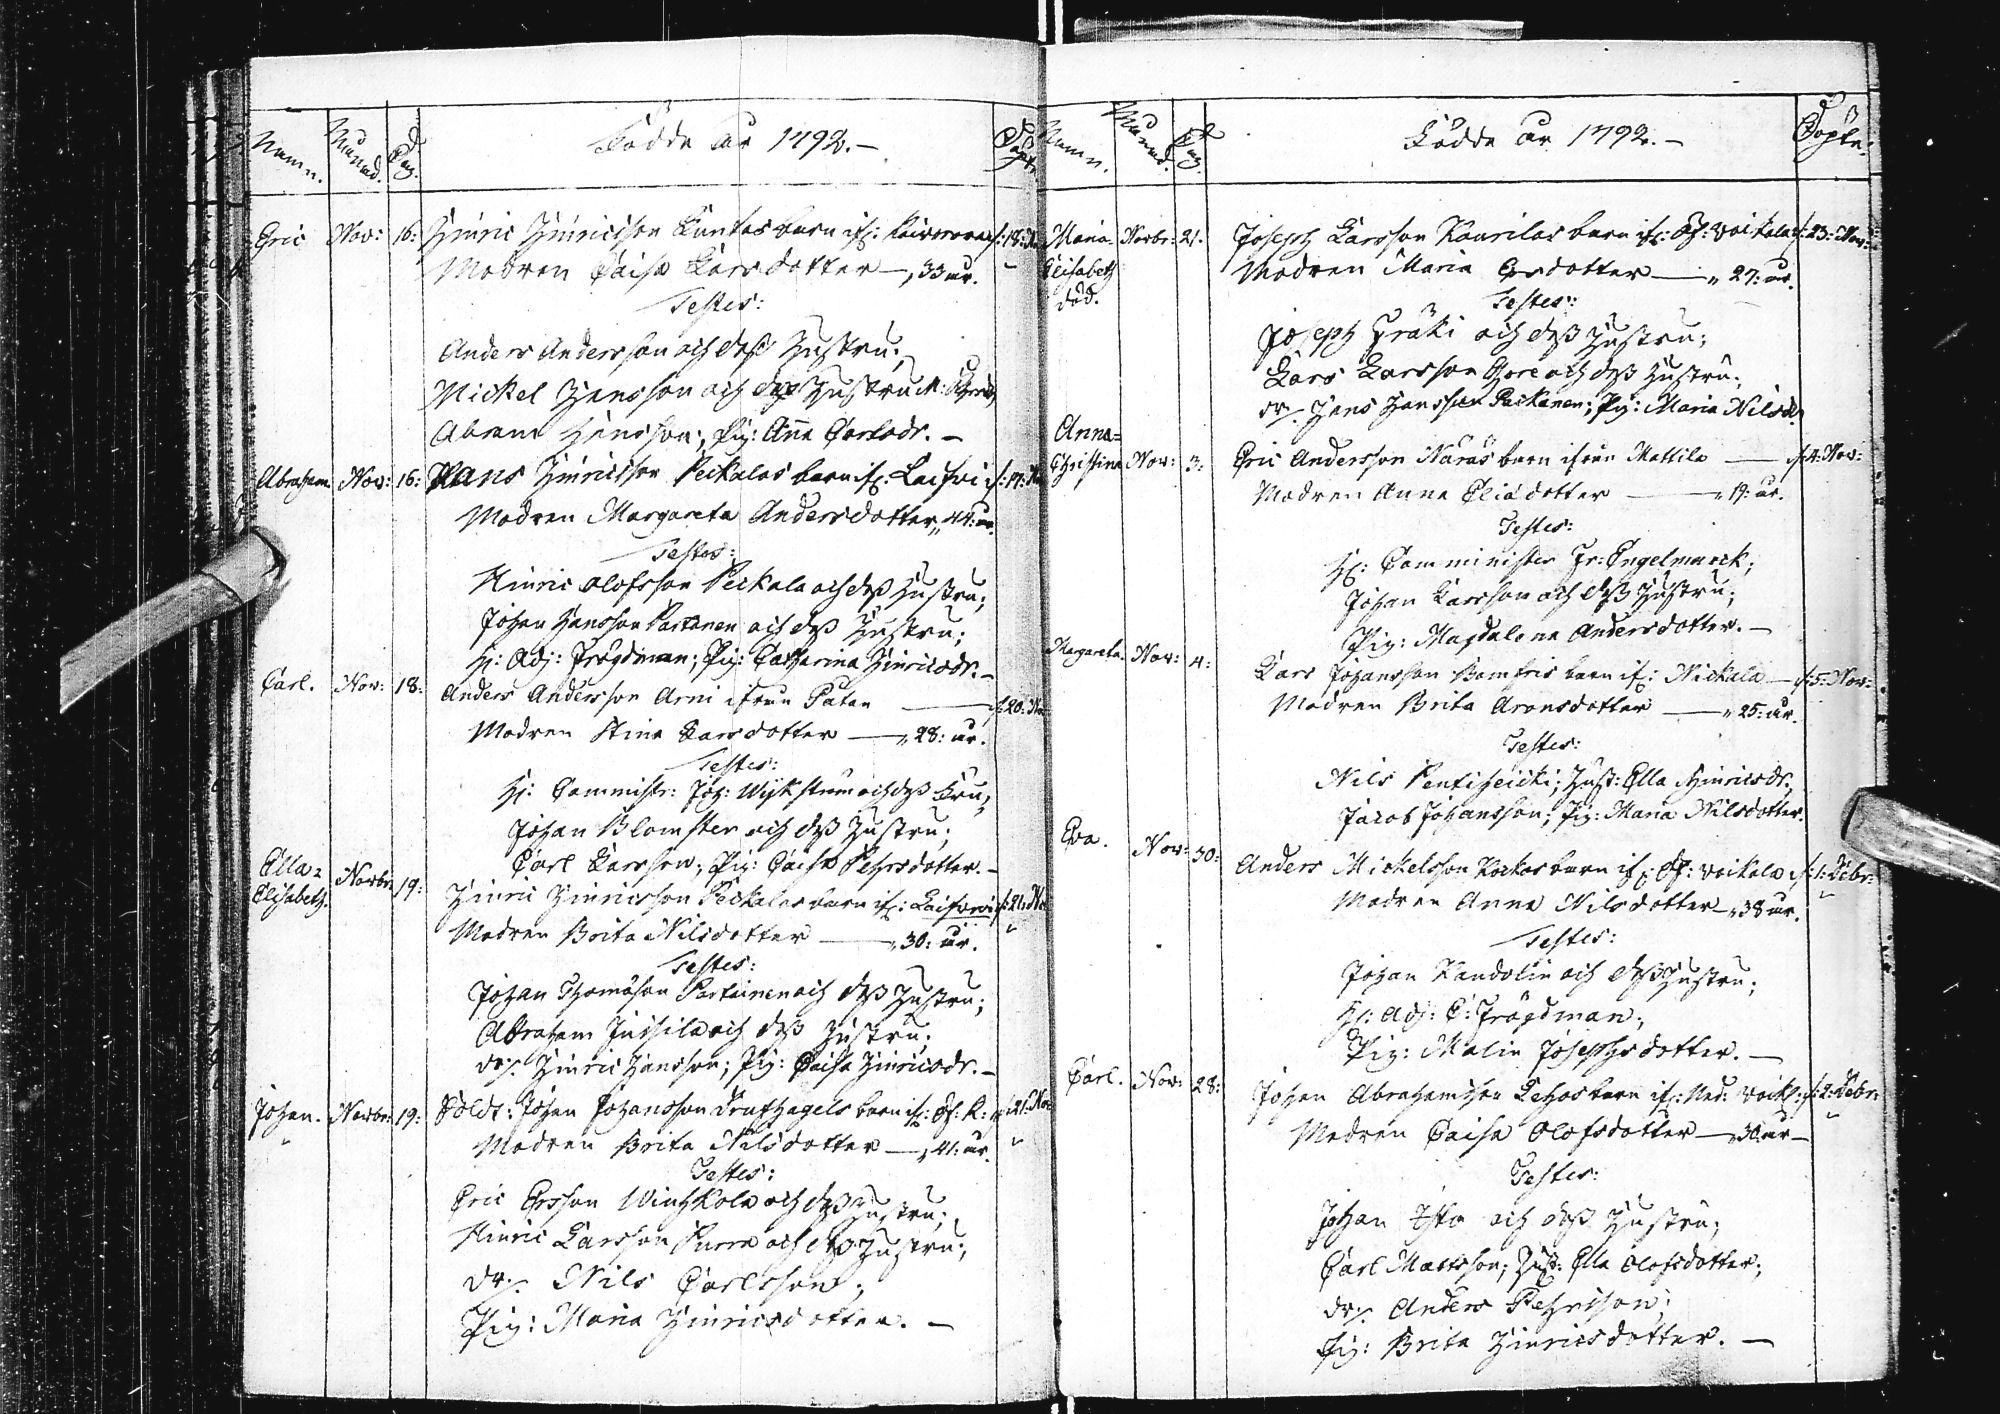 Namn.
Månad.
Dag.
Födde År 1792.—
Döpte.
Eric Nov: 16: Hinric Hinricsson Kuntas barn ifr: f:18:
Modren Caisa Larsdotter —„ 33 år.
Testes:
Anders Andersson och dess Hustru;
Mickel Hansson och dess Hustru M:
Abram Hansson; Pig: Anna Carlsdr. —
Abraham Nov: 16: Hans Hinricsson Peckalas barn ifr. Laifvi f:17:
Modren Margareta Andersdotter „ 44: år
Testes:
Hinric Olofsson Peckala och dess Hustru;
Johan Hansson Partanen och dess Hustru;
H: Adj: Frögdman; Pig: Catharina Hinricsdr.—
Carl. Nov: 18: Anders Andersson Arni ifrån Patan — f:20:
Modren Stina Larsdotter —„ 28: år.
Testes:
H: Comministr: Joh: Wijkström och dess Fru;
Johan Blomster och dess Hustru;
Carl Larsson; Pig: Caisa Pehrsdotter.—
Ella=
Elisabeth. Novbr: 19: Hinric Hinricsson Peckalas barn ifr: Laifvi f:21:
Modren Brita Nilsdotter —„ 30: år.
Testes:
Johan Thomasson Partainen och dess Hustru;
Abraham Jussila och dess Hustru;
dr:. Hinric Hansson; Pig: Caisa Hinricsdr.—
Johan. Novbr: 19: Soldt: Johan Johansson Drufhagels barn ifr: Öf: K: f:21:Nov
Modren Brita Nilsdotter —„ 41: år.
Testes:
Eric Ersson och dess Hustru;
Hinric Larsson Purra och dess Hustru;
dr:. Nils Carlsson;
Pig: Maria Hinricsdotter. —
Namn.
Månad.
Dag.
Födde År 1792.—
Döpte.
Maria Novbr: 21. Joseph Larsson Kaurilas barn ifr: Öf: Voikala f:23: Nov:
Elisabeth Modren Maria Ersdotter —„ 27: år.
död.
Testes:
Joseph Fräki och dess Hustru;
Lars Larsson och dess Hustru;
dr:. Hans Hansson Packanen; Pig: Maria Nilsdr
Anna=
Christina Nov: 3: Eric Andersson Naräs barn ifrån Mattila — f:4: Nov:
Modren Anna Eliædotter —„ 19: år.
Testes:
H: Comminister Fr: Engelmarck;
Johan Larsson och dess Hustru;
Pig: Magdalena Andersdotter. —
Margareta. Nov: 4: Lars Johansson barn ifr: Nickala — f:5: Nov:
Modren Brita Aronsdotter —„ 25: år.
Testes:
Nils Pentiheicki; Hust: Ella Hinricsdr.
Jacob Johansson; Pig: Maria Nilsdotter.
Eva. Nov: 30: Anders Mickelsson Kockos barn ifr: Öf: Voikala f:1: Debr:
Modren Anna Nilsdotter —„ 38 år.
Testes:
Johan Kandolin och dess Hustru;
H: Adj: E: Frögdman;
Pig: Malin Josephsdotter. —
Carl. Nov: 28: Johan Abrahamsson Lehos barn ifr: Ned: Voikl: f:2: Debr:
Modren Caisa Olofsdotter —„ 30 år —
Testes:
Johan och dess Hustru;
Carl Mattsson; Hust: Ella Olofsdotter;
dr:. Anders Pehrsson;
Pig: Brita Hinricsdotter. —